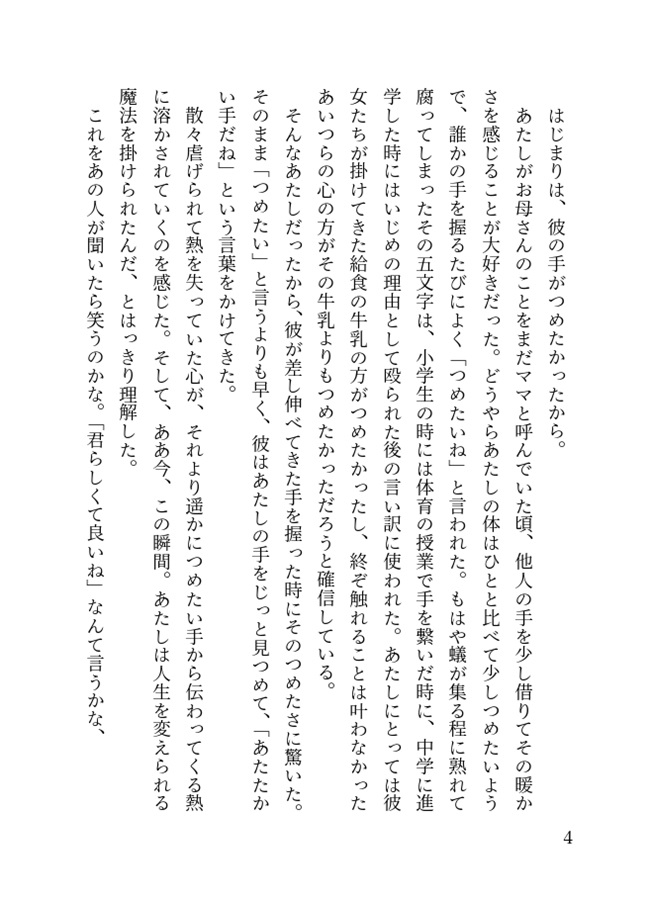 はじまりは、彼の手がつめたかったから。
あたしがお母さんのことをまだママと呼んでいた頃、他人の手を少し借りてその暖か
さを感じることが大好きだった。どうやらあたしの体はひとと比べて少しつめたいよう
で、誰かの手を握るたびによく「つめたいね」と言われた。もはや蟻が集る程に熟れて
腐ってしまったその五文字は、小学生の時には体育の授業で手を繋いだ時に、中学に進
学した時にはいじめの理由として殴られた後の言い訳に使われた。あたしにとっては彼
女たちが掛けてきた給食の牛乳の方がつめたかったし、終ぞ触れることは叶わなかった
あいつらの心の方がその牛乳よりもつめたかっただろうと確信している。
そんなあたしだったから、彼が差し伸べてきた手を握った時にそのつめたさに驚いた。
そのまま「つめたい」と言うよりも早く、彼はあたしの手をじっと見つめて、「あたたか
い手だね」という言葉をかけてきた。
散々虐げられて熱を失っていた心が、それより遥かにつめたい手から伝わってくる熱
に溶かされていくのを感じた。そして、ああ今、この瞬間。あたしは人生を変えられる
魔法を掛けられたんだ、とはっきり理解した。
これをあの人が聞いたら笑うのかな。「君らしくて良いね」なんて言うかな、
4